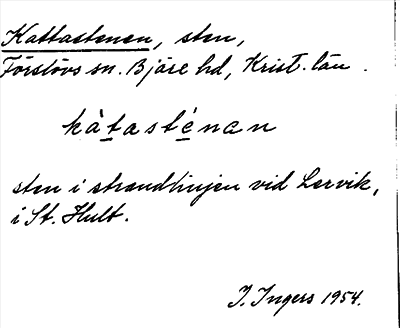 Kattastenen, sten,
Förslövs sn. Bjäre hd, Krist. län.
kàtasténan
sten i strandlinjen vid Lervik,
i St. Hult.
I. Ingers 1954.